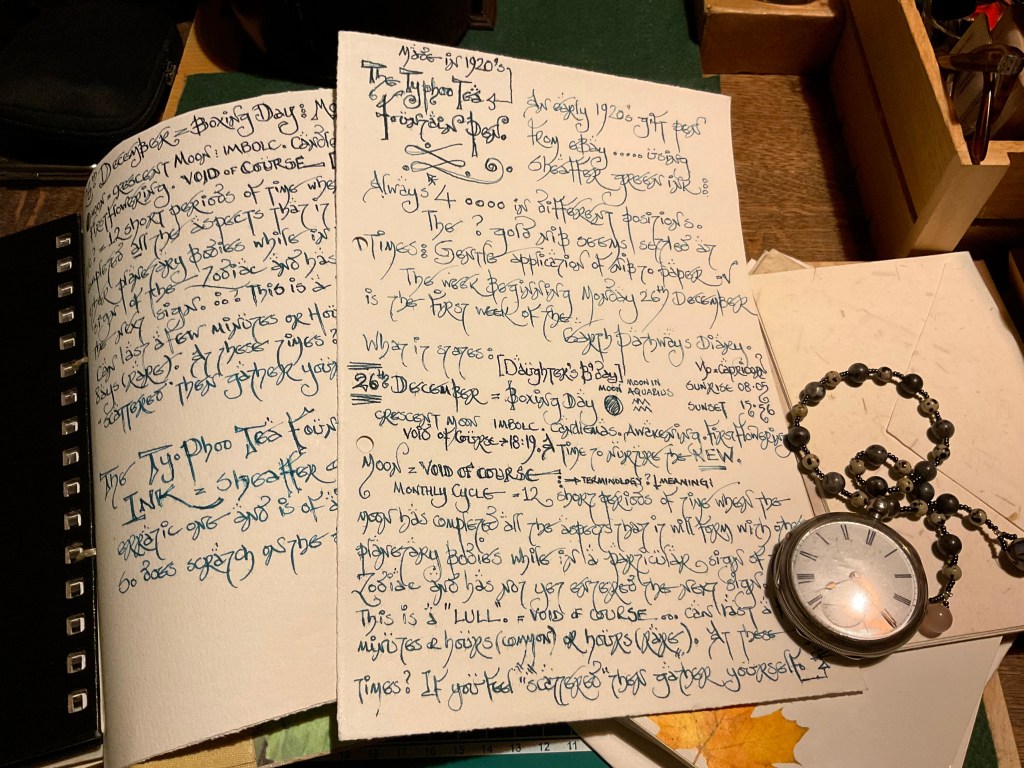 : DECEMBER = BOXING DAY: MO
MOON. CRESCENT MOON: IMBOLC. CANDLE
FIRST FLOWERING. VOID OF COURSE
12 SHORT PERIODS OF TIME WHE
COMPLETED ALL THE ASPECTS THAT IT
PLANETARY BODIES WHILE IN
SIGN OF THE ZODIAC AND HAS
THE NEXT SIGN. THIS IS A
CAN LAST A FEW MINUTES OR HOU
DAYS (RARE). AT THESE TIMES?
SCATTERED THEN GATHER YOUR
THE TY.PHOO TEA FOUN
INK = SHEAFFER
ERRATIC ONE AND IS OF A
SO DOES SCRATCH ON THE
MADE IN 1920's
THE TYPHOO TEA
FOUNTAIN PEN.
AN EARLY 1920's GIFT PEN
FROM EBAY ..... USING
SHEAFFER GREEN INK:
ALWAYS 4 .... IN DIFFERENT POSITIONS.
THE ? GOLD NIB SEEMS SETTLED AT
TIMES: GENTLE APPLICATION OF NIB TO PAPER
THE WEEK BEGINNING MONDAY 26TH DECEMBER
IS THE FIRST WEEK OF THE
EARTH PATHWAYS DIARY.
WHAT IT STATES: [DAUGHTER'S B'DAY] V/C CAPRICORN
26TH DECEMBER = BOXING DAY MOON MOON IN AQUARIUS SUNRISE 08.05
SUNSET 15:56
CRESCENT MOON IMBOLC. CANDLEMAS. AWAKENING. FIRST FLOWERING
VOID OF COURSE → 18:19. A TIME TO NURTURE THE NEW.
MOON = VOID OF COURSE → TERMINOLOGY? ↓ MEANING!
MONTHLY CYCLE = 12 SHORT PERIODS OF TIME WHEN THE
MOON HAS COMPLETED ALL THE ASPECTS THAT IT WILL FORM WITH OTHER
PLANETARY BODIES WHILE IN A PARTICULAR SIGN OF
ZODIAC AND HAS NOT YET ENTERED THE NEXT SIGN
THIS IS A "LULL". = VOID OF COURSE .... CAN LAST A
MINUTES OR HOURS (COMMON) OR HOURS (RARE). AT THESE
TIMES? IF YOU FEEL "SCATTERED" THEN GATHER YOURSELF
12 11